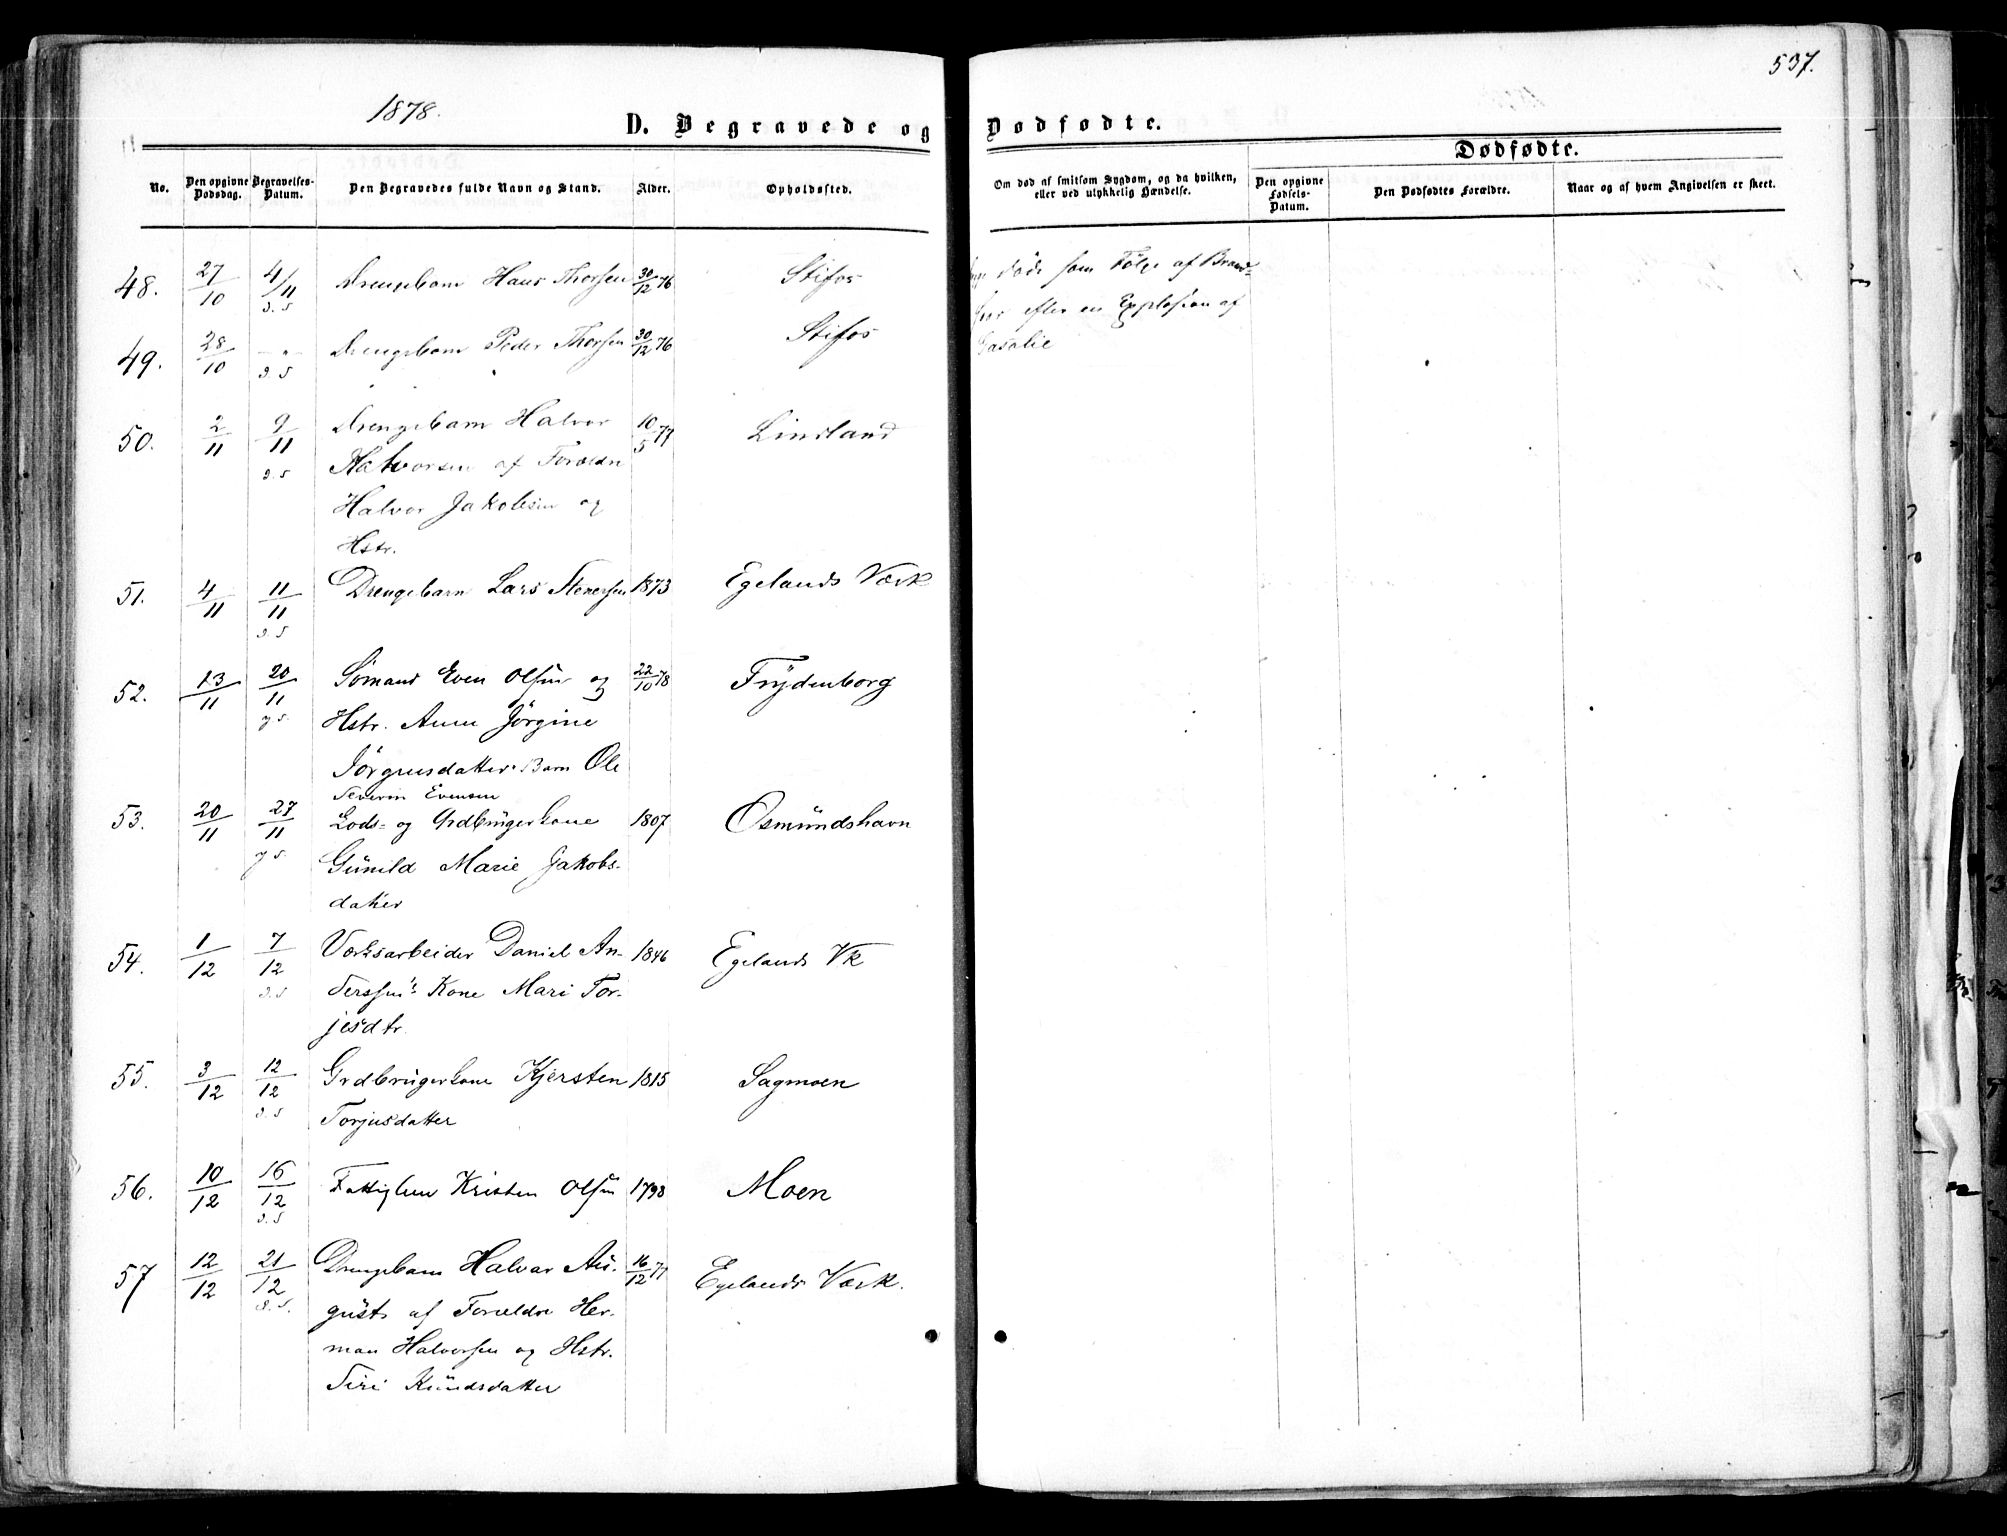 537.
1878.
D. Begravede og Dødfødte.
Dødfødte.
No.
Den opgivne Dødsdag.
Begravelses-Datum.
Den Begravedes fulde Navn og Stand.
Alder.
Opholdssted.
Om død af smitsom Sygdom, og da hvilken, eller ved ulykkelig Hændelse.
Den opgivne Fødsels-Datum.
Den Dødfødtes Forældre.
Naar og af hvem Angivelsen er skeet.
48. 27/10 4/11 Drengebarn Hans Thorsen 30/12 76 Stifos
d. S
døde som Følge af Brand-
saar efter en Explosion af
Gasolie
49. 28/10 — " — Drengebarn Peder Thorsen 30/12 76 Stifos
d. S
50. 2/11 9/11 Drengebarn Halvor 10/5 77 Linsland
d. S
Halvorsen af Forældre
Halvor Jakobsen og
Hstr.
51. 4/11 11/11 Drengebarn Lars Stenersen 1873 Egelands Værk
d. S
52. 13/11 20/11 Sømand Even Olsen og 22/10 78 Frydenborg
g S.
Hstr. Anne Jörgine
Jörgensdatters Barn Ole
Severin Evensen
53. 20/11 27/11 Lods- og Grdbrugerkone 1807 Osmundshavn
g S.
Gunild Marie Jakobs-
datter
54. 1/12 7/12 Værksarbeider Daniel An- 1846 Egelands Vk
d. S
dersens Kone Mari Tor-
jesdtr.
55. 3/12 12/12 Grdbrugerkone Kjersten 1815 Sagmoen
d. S
Torjusdatter
56. 10/12 16/12 Fattiglem Kristen Olsen 1798 Moen
d. S
57 12/12 21/12 Drengebarn Halvar Au- 16/12 77 Egelands Værk.
d. S.
gust af Forældre Her-
man Halvorsen og Hstr.
Siri Knudsdatter